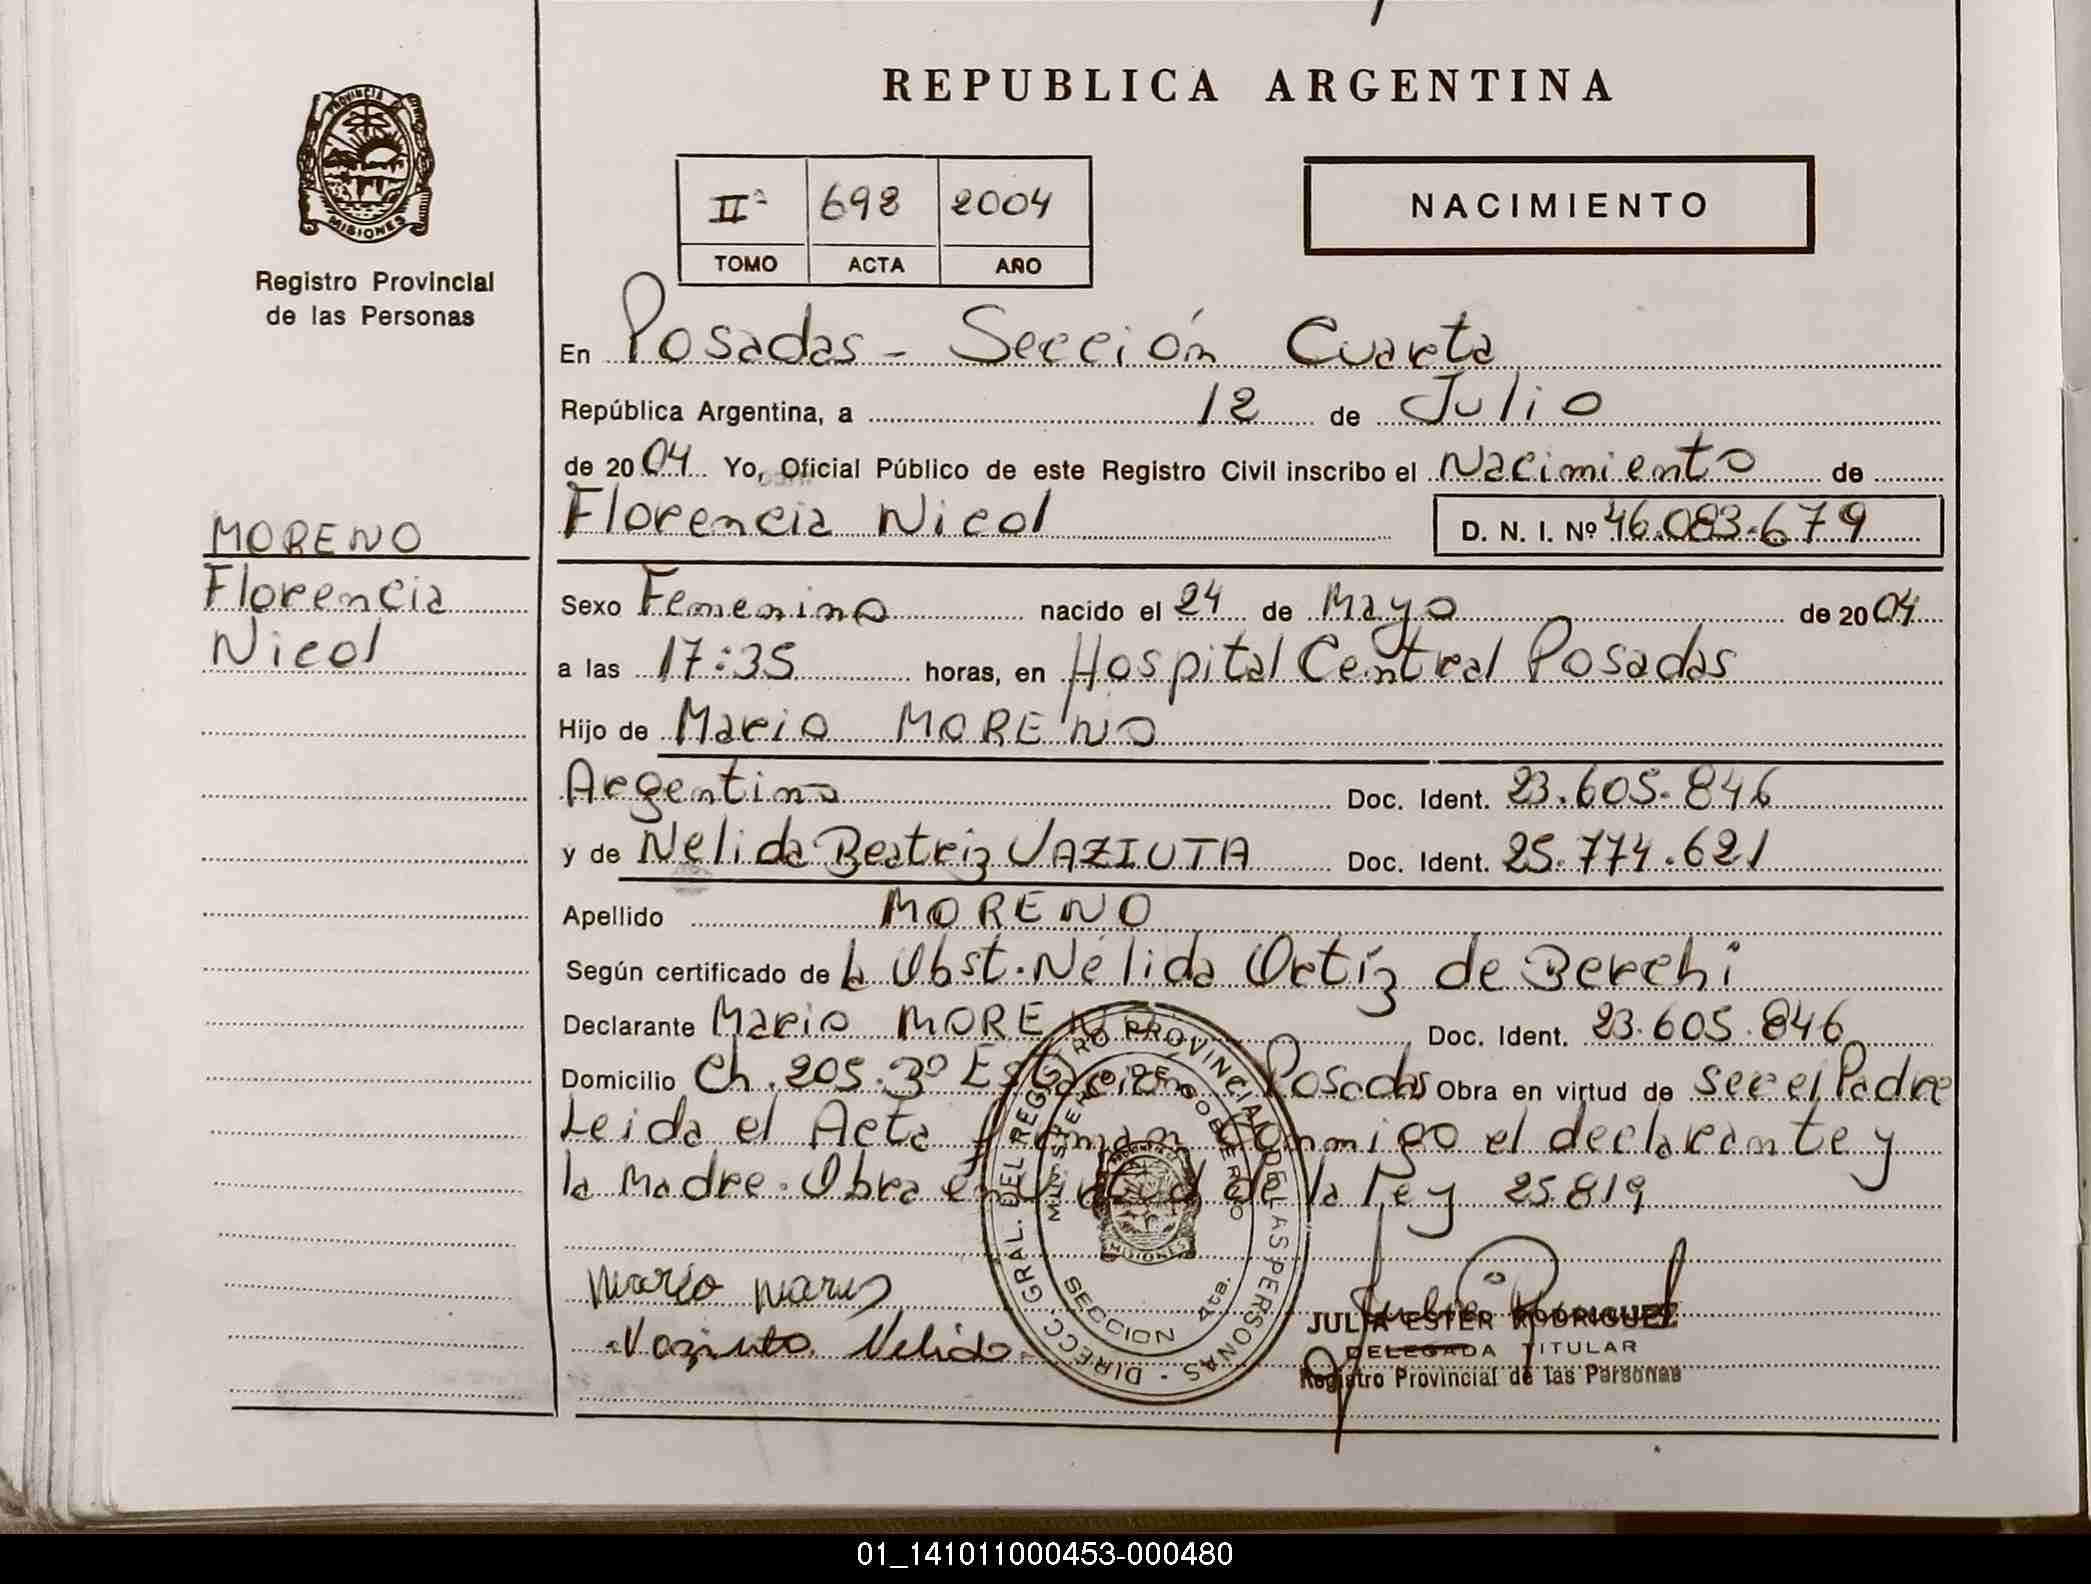 REPUBLICA ARGENTINA
PROVINCIA
MISIONES
Registro Provincial
de las Personas
IIª 698 2004
TOMO ACTA AÑO
NACIMIENTO
En Posadas - Sección Cuarta
República Argentina, a 12 de Julio
de 2004 Yo, Oficial Público de este Registro Civil inscribo el Nacimiento de
Florencia Nicol D. N. I. Nº 46.083.679
MORENO
Florencia
Nicol
Sexo Femenino nacido el 24 de Mayo de 2004
a las 17:35 horas, en Hospital Central Posadas
Hijo de Mario MORENO
Argentino Doc. Ident. 23.605.846
y de Nelida Beatriz VAZIUTA Doc. Ident. 25.774.621
Apellido MORENO
Según certificado de la Obst. Nélida Ortíz de Berchi
Declarante Mario MORENO Doc. Ident. 23.605.846
Domicilio Ch. 205. 3º Estación Posadas Obra en virtud de ser el Padre
Leida el Acta firman Conmigo el declarante y
la madre. Obra en virtud de la Ley 25.819
DIRECC. GRAL. DEL REGISTRO PROVINCIAL DE LAS PERSONAS
MINISTERIO DE GOBIERNO
MISIONES
SECCION 4ta.
Vaziuta Nelida
JULIA ESTER RODRIGUEZ
DELEGADA TITULAR
Registro Provincial de las Personas
01_141011000453-000480